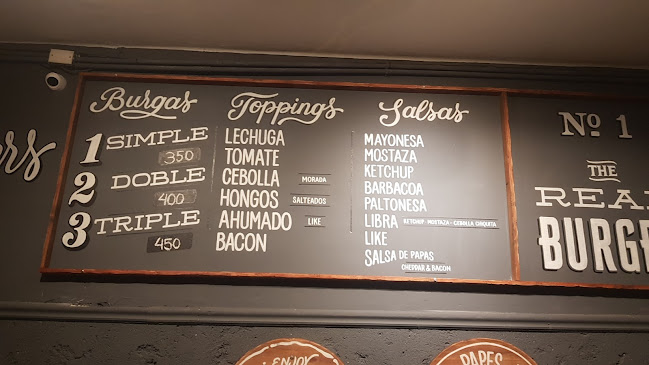 Burgas
1 SIMPLE
350
2 DOBLE
400
3 TRIPLE
450
Toppings
LECHUGA
TOMATE
CEBOLLA MORADA
HONGOS SALTEADOS
AHUMADO LIKE
BACON
Salsas
MAYONESA
MOSTAZA
KETCHUP
BARBACOA
PALTONESA
LIBRA KETCHUP-MOSTAZA-CEBOLLA CHIQUITA
LIKE
SALSA DE PAPAS
CHEDDAR & BACON
Nº 1
THE
REA
BURGE
ers
ENJOY
PAPES